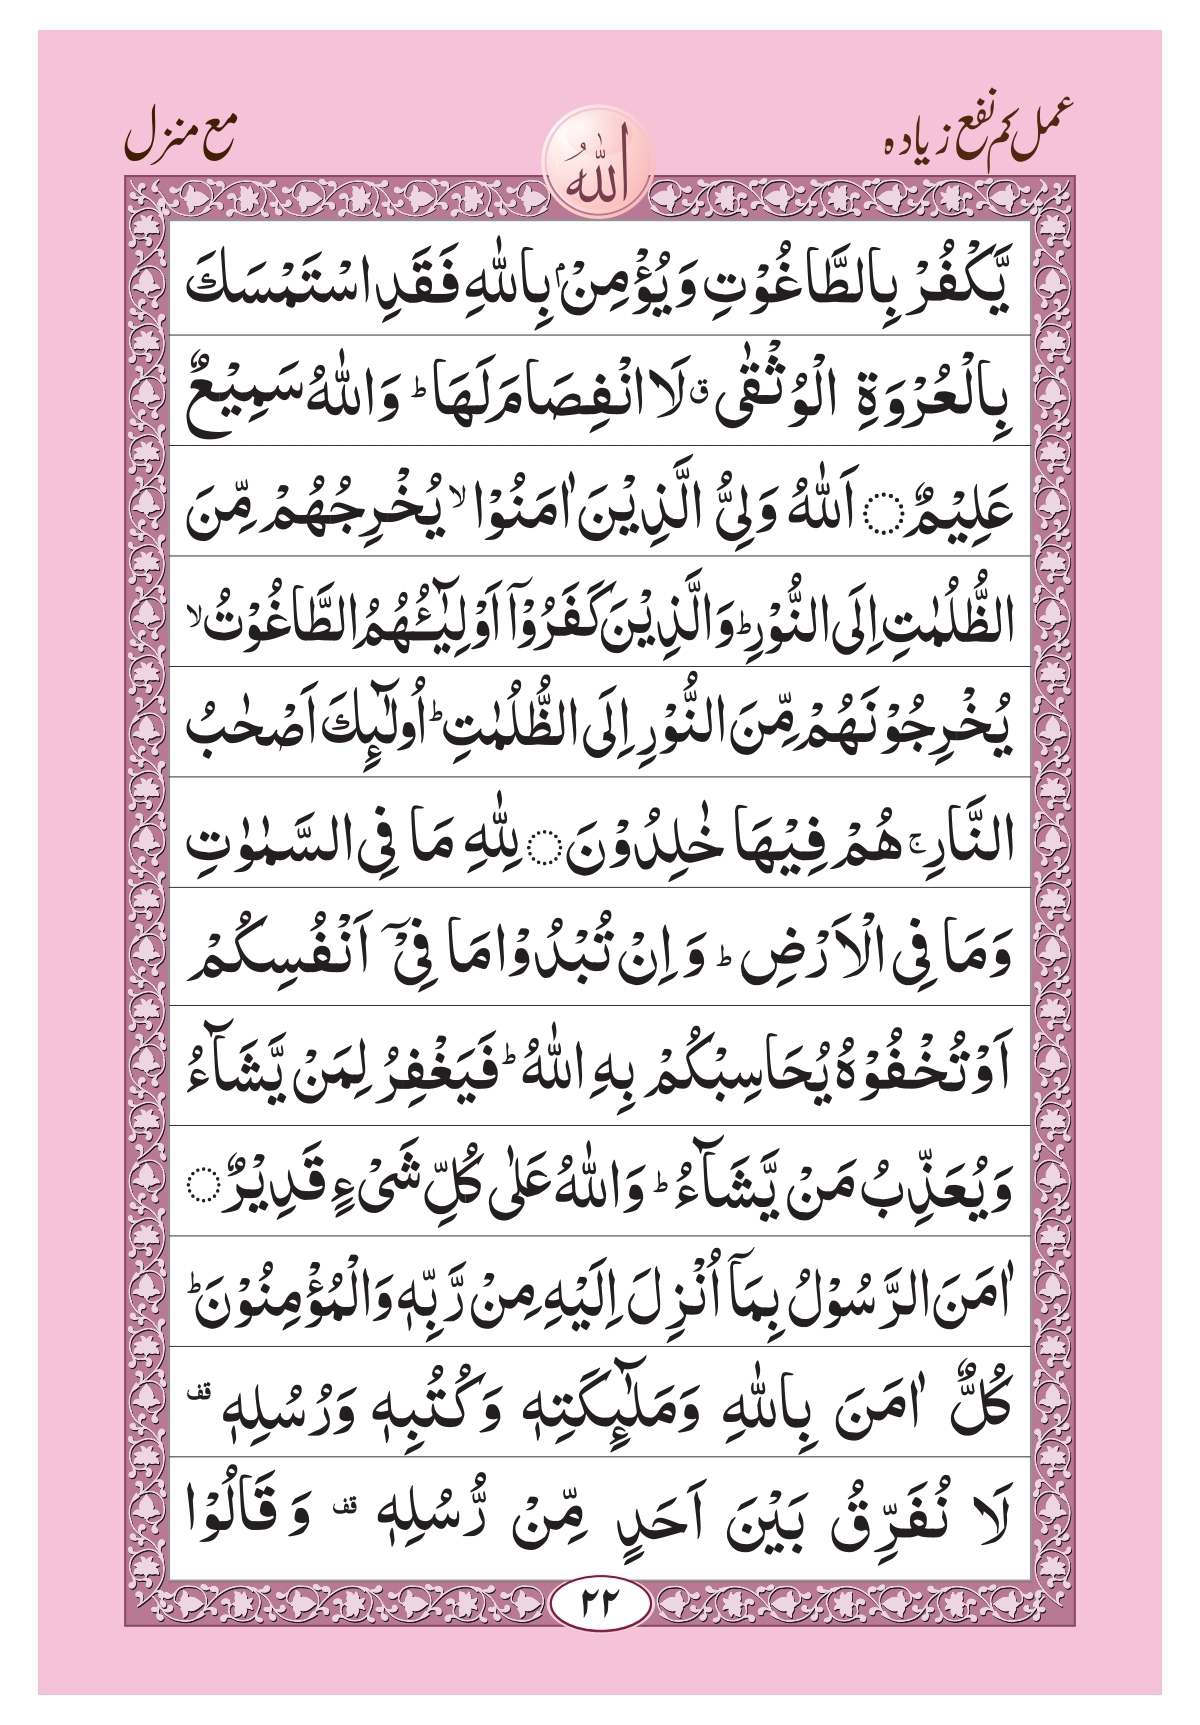 عمل کم نفع زیادہ
مع منزل
اللہ
یَّكْفُرْ بِالطَّاغُوْتِ وَیُؤْمِنْۢ بِاللّٰهِ فَقَدِ اسْتَمْسَكَ
بِالْعُرْوَةِ الْوُثْقٰىۗ لَا انْفِصَامَ لَهَاؕ وَاللّٰهُ سَمِیْعٌ
عَلِیْمٌ۝ اَللّٰهُ وَلِیُّ الَّذِیْنَ اٰمَنُوْاۙ یُخْرِجُهُمْ مِّنَ
الظُّلُمٰتِ اِلَى النُّوْرِؕ وَالَّذِیْنَ كَفَرُوْۤا اَوْلِیٰٓـُٔهُمُ الطَّاغُوْتُۙ
یُخْرِجُوْنَهُمْ مِّنَ النُّوْرِ اِلَى الظُّلُمٰتِؕ اُولٰٓىِٕكَ اَصْحٰبُ
النَّارِۚ هُمْ فِیْهَا خٰلِدُوْنَ۝ لِلّٰهِ مَا فِی السَّمٰوٰتِ
وَمَا فِی الْاَرْضِؕ وَاِنْ تُبْدُوْا مَا فِیْۤ اَنْفُسِكُمْ
اَوْ تُخْفُوْهُ یُحَاسِبْكُمْ بِهِ اللّٰهُؕ فَیَغْفِرُ لِمَنْ یَّشَآءُ
وَیُعَذِّبُ مَنْ یَّشَآءُؕ وَاللّٰهُ عَلٰى كُلِّ شَیْءٍ قَدِیْرٌ۝
اٰمَنَ الرَّسُوْلُ بِمَاۤ اُنْزِلَ اِلَیْهِ مِنْ رَّبِّهٖ وَالْمُؤْمِنُوْنَؕ
كُلٌّ اٰمَنَ بِاللّٰهِ وَمَلٰٓىِٕكَتِهٖ وَكُتُبِهٖ وَرُسُلِهٖ قف
لَا نُفَرِّقُ بَیْنَ اَحَدٍ مِّنْ رُّسُلِهٖ قف وَقَالُوْا
۲۲